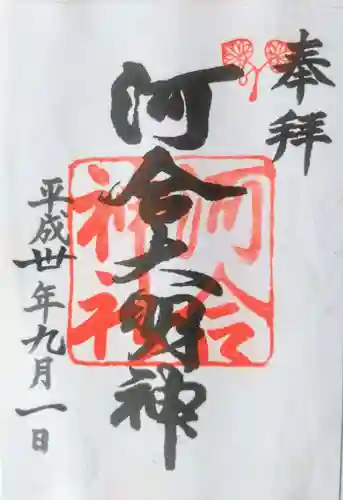 奉拝
河合大明神
河合
神社
平成卅年九月一日